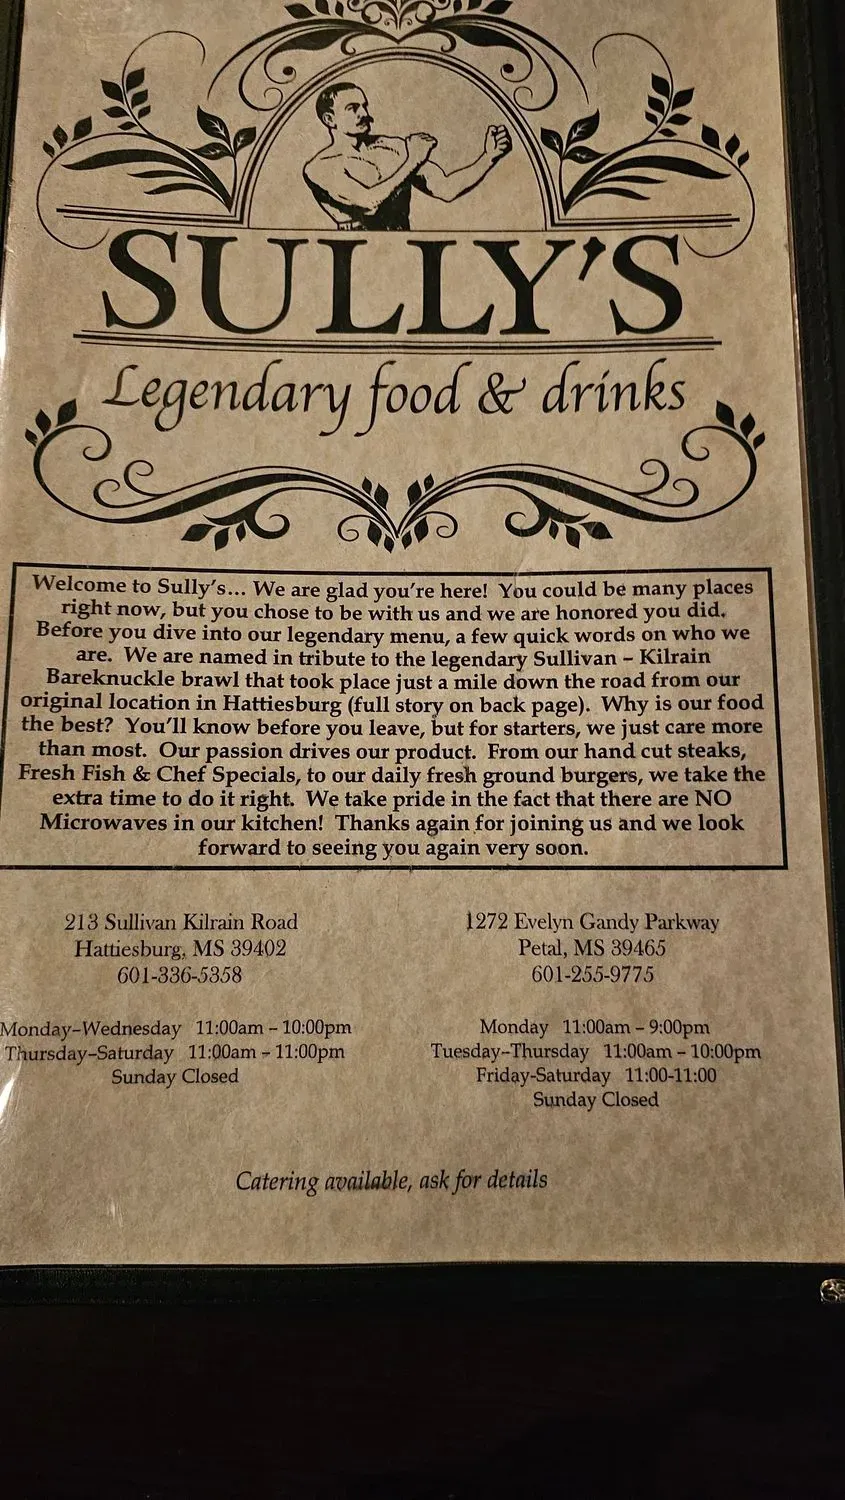 SULLY'S
Legendary food & drinks
Welcome to Sully's... We are glad you're here! You could be many places
right now, but you chose to be with us and we are honored you did.
Before you dive into our legendary menu, a few quick words on who we
are. We are named in tribute to the legendary Sullivan – Kilrain
Bareknuckle brawl that took place just a mile down the road from our
original location in Hattiesburg (full story on back page). Why is our food
the best? You'll know before you leave, but for starters, we just care more
than most. Our passion drives our product. From our hand cut steaks,
Fresh Fish & Chef Specials, to our daily fresh ground burgers, we take the
extra time to do it right. We take pride in the fact that there are NO
Microwaves in our kitchen! Thanks again for joining us and we look
forward to seeing you again very soon.
213 Sullivan Kilrain Road
Hattiesburg, MS 39402
601-336-5358
Monday–Wednesday 11:00am – 10:00pm
Thursday–Saturday 11:00am – 11:00pm
Sunday Closed
1272 Evelyn Gandy Parkway
Petal, MS 39465
601-255-9775
Monday 11:00am – 9:00pm
Tuesday–Thursday 11:00am – 10:00pm
Friday-Saturday 11:00-11:00
Sunday Closed
Catering available, ask for details